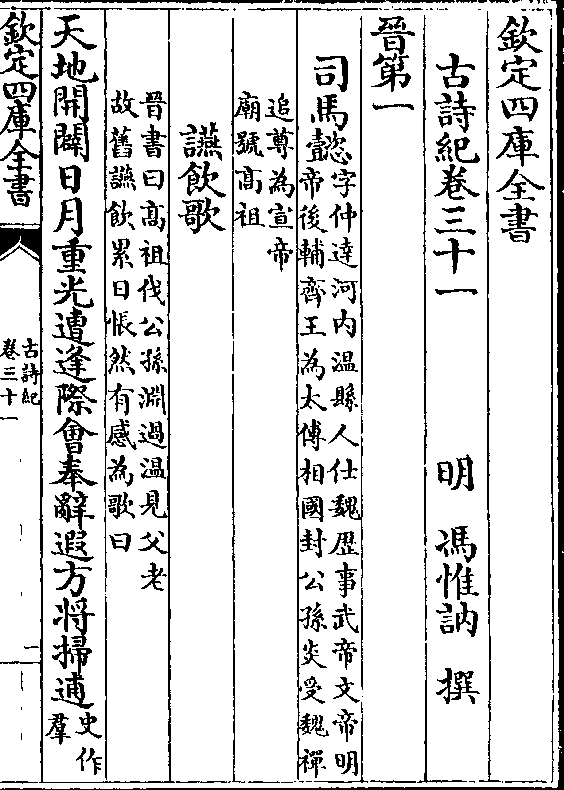 欽定四庫全書
古詩紀卷三十一
明 馮惟訥 撰
晉第一
司馬懿
字仲達河内温縣人仕魏歴事武帝文帝明
帝後輔齊王為太傅相國封公孫炎受魏禪
追尊為宣帝
廟號高祖
讌飲歌
晉書曰高祖伐公孫淵過温見父老
故舊讌飲累日悵然有感為歌曰
天地開闢日月重光遭逢際會奉辭遐方將掃逋
史作
羣
欽定四庫全書
古詩紀
卷三十一
一